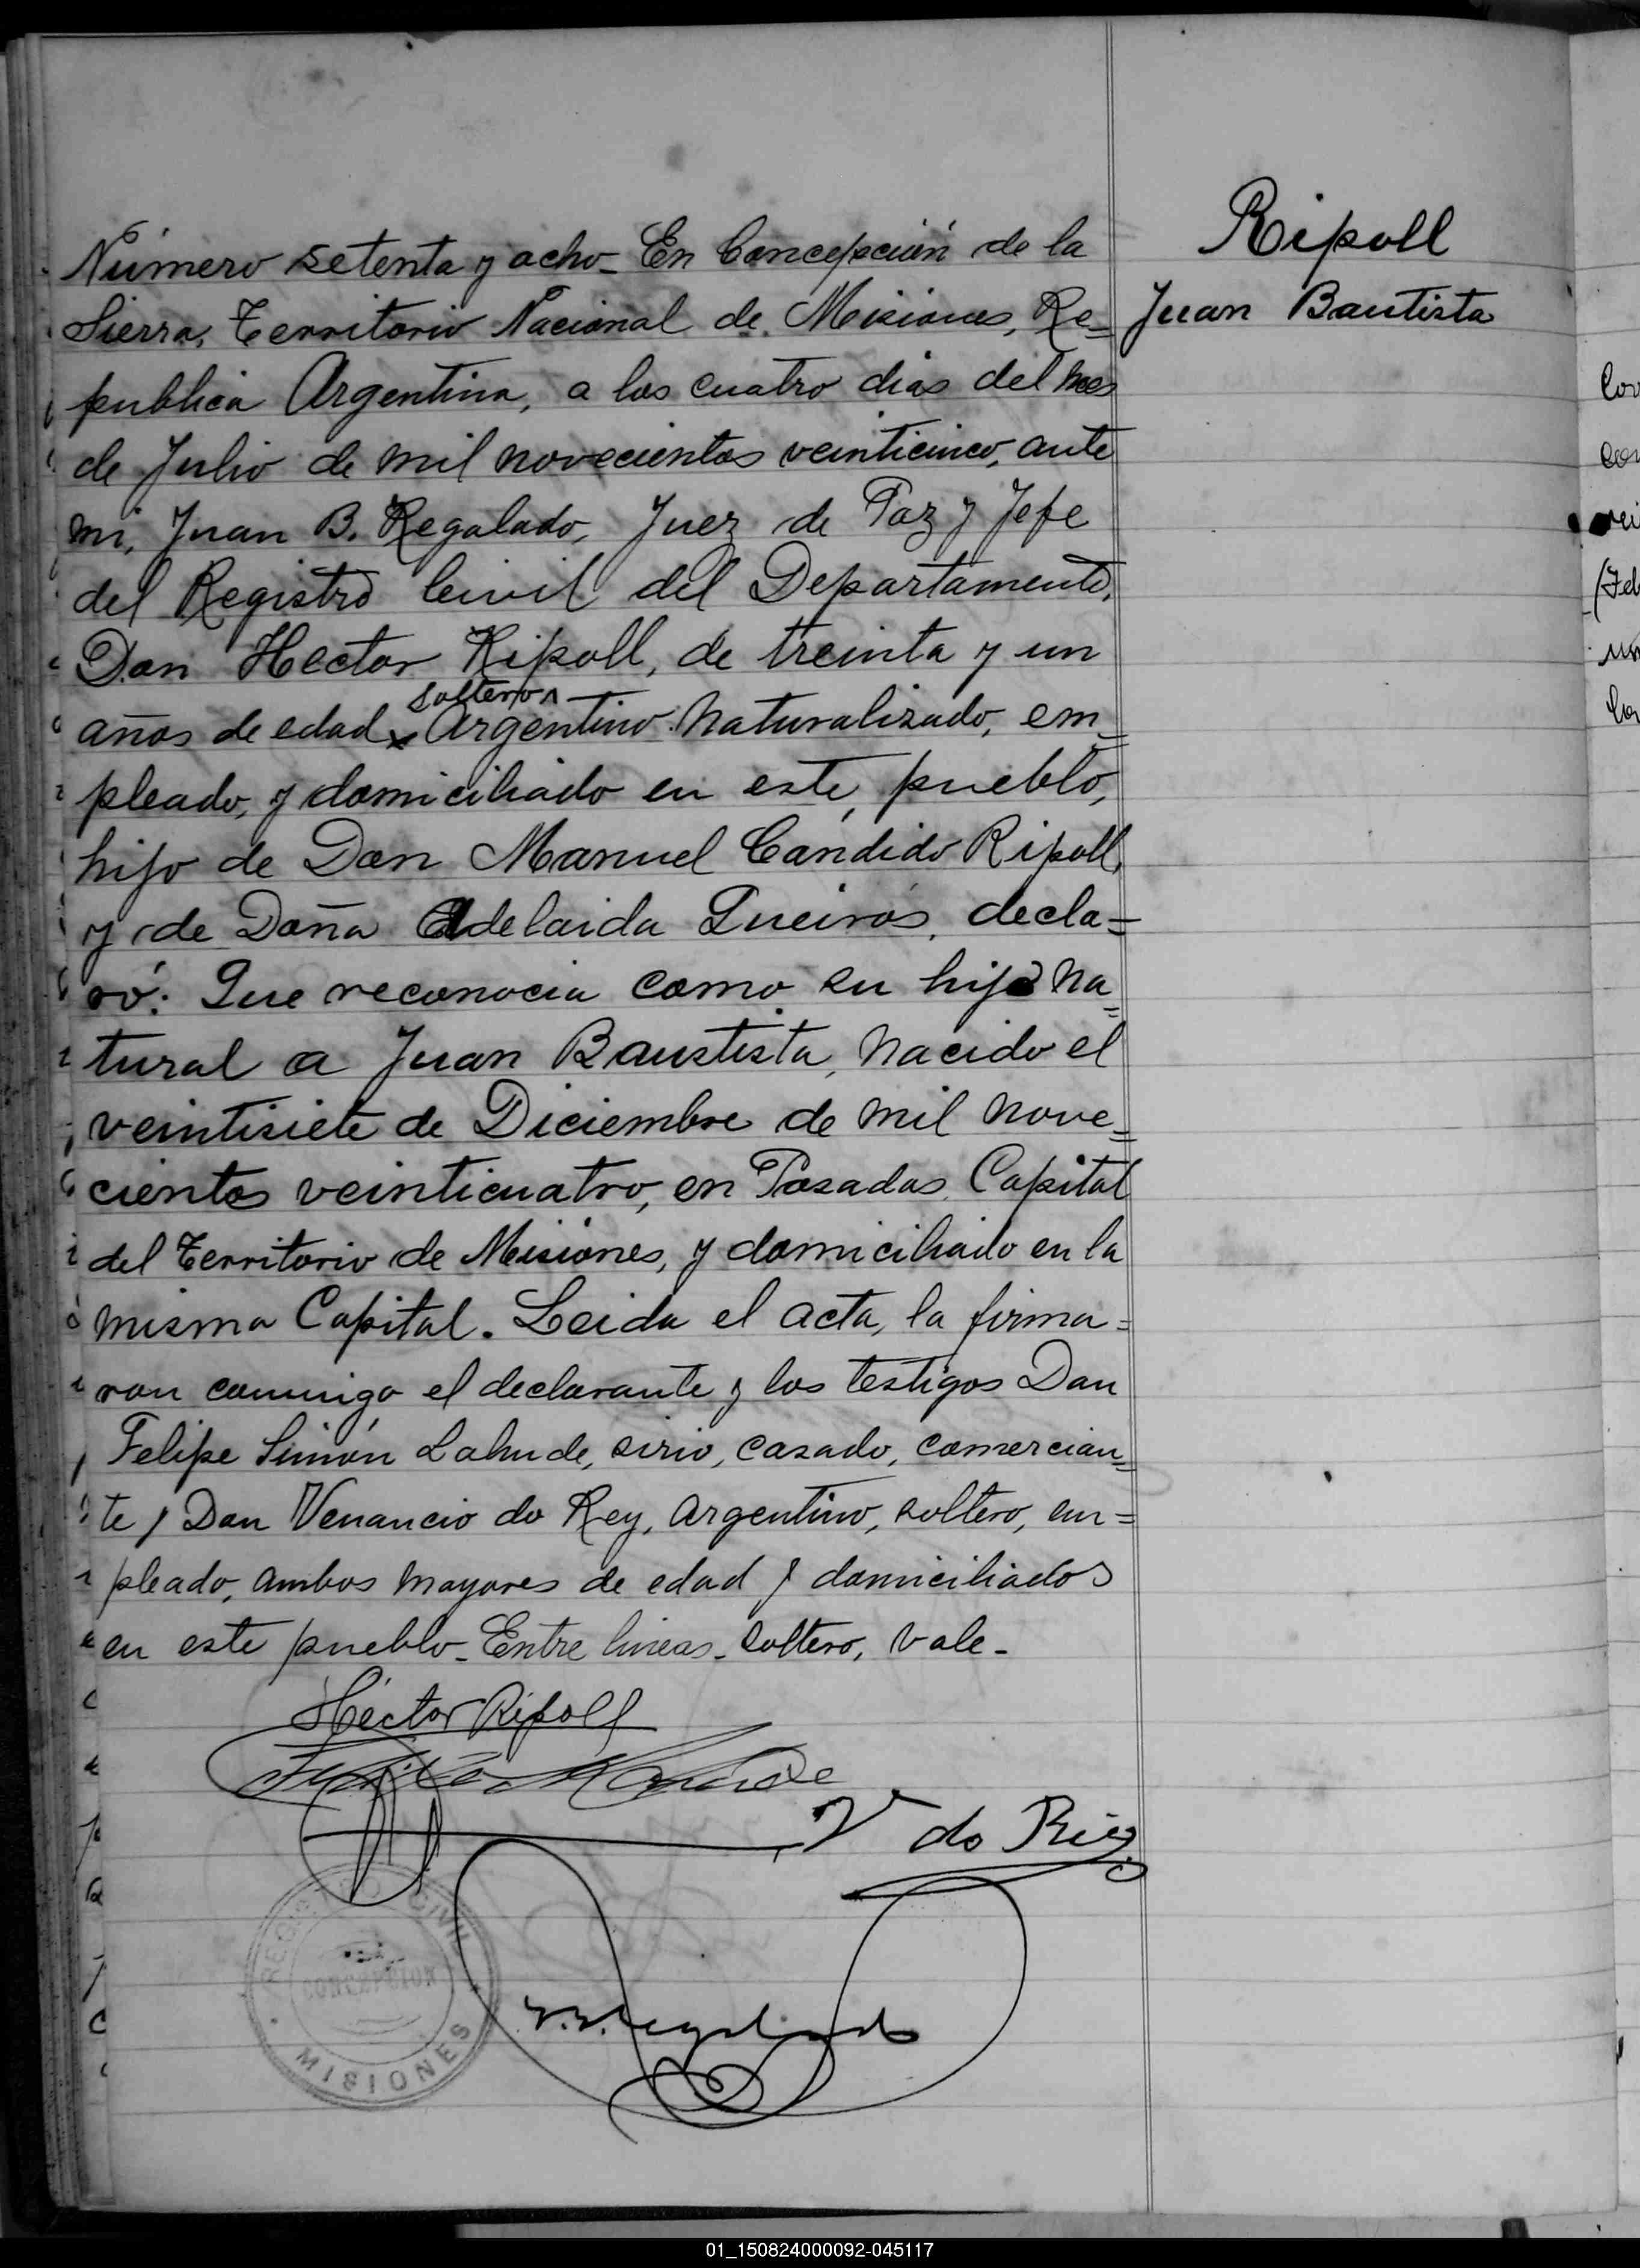 Ripoll
Juan Bautista
Número setenta y ocho_ En Concepción de la
Sierra, Territorio Nacional de Misiones, Re=
publica Argentina, a los cuatro dias del mes
de Julio de mil novecientos veinticinco, ante
mi, Juan B. Regalado, Juez de Paz y Jefe
del Registro Civil del Departamento,
Don Hector Ripoll, de treinta y un
soltero
años de edad, Argentino naturalizado, em=
pleado, y domiciliado en este pueblo,
hijo de Don Manuel Cándido Ripoll,
y de Doña Adelaida Queirós, decla=
ró: Que reconocia como su hijo na=
tural a Juan Baustista, nacido el
veintisiete de Diciembre de mil nove=
cientos veinticuatro, en Posadas, Capital
del Territorio de Misiones, y domiciliado en la
misma Capital. Leida el acta, la firma=
ron conmigo el declarante y los testigos Don
Felipe Simón Lahude, sirio, casado, comercian=
te y Don Venancio do Rey, argentino, soltero, em=
pleado, ambos mayores de edad y domiciliados
en este pueblo_ Entre lineas_ soltero, vale_
Héctor Ripoll
V do Rey
REGISTRO CIVIL
CONCEPCION
MISIONES
01_150824000092-045117